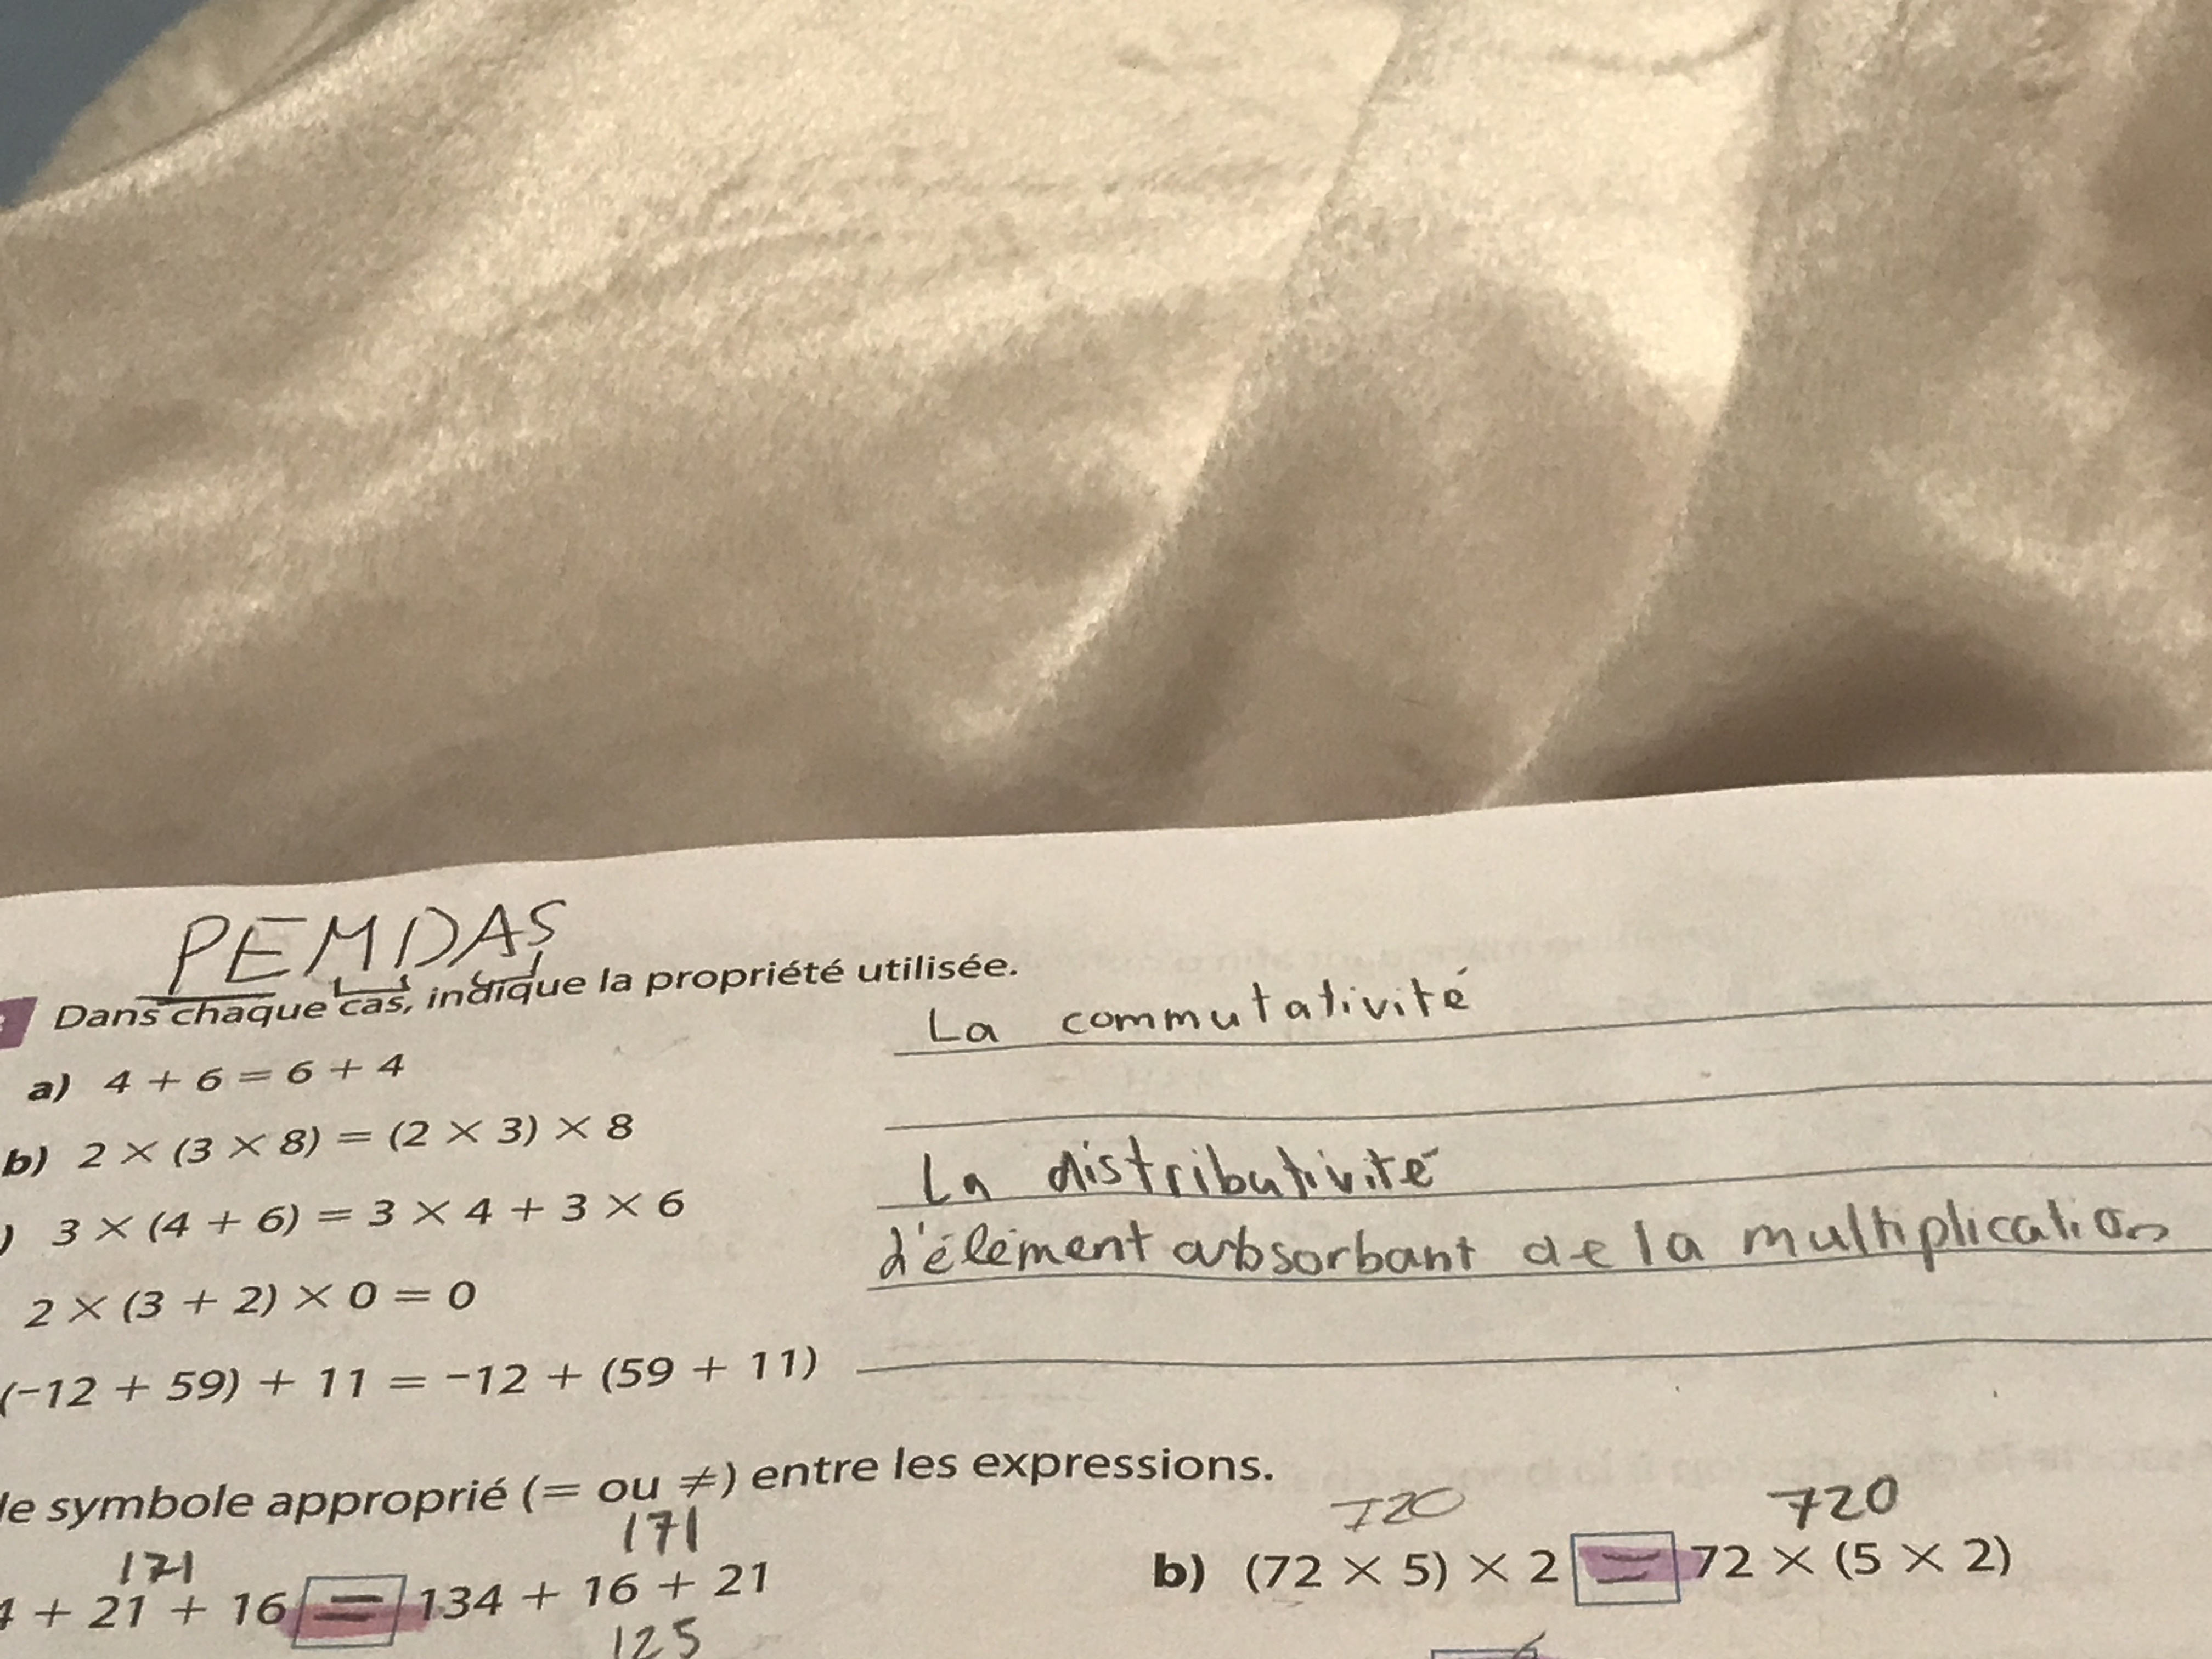 PEMDAS
Dans chaque cas, indique la propriété utilisée.
a) 4 + 6 = 6 + 4 La commutativité
b) 2 × (3 × 8) = (2 × 3) × 8
) 3 × (4 + 6) = 3 × 4 + 3 × 6 La distributivité
2 × (3 + 2) × 0 = 0 L'élément absorbant de la multiplication
(−12 + 59) + 11 = −12 + (59 + 11)
le symbole approprié (= ou ≠) entre les expressions.
171 171 720 720
4 + 21 + 16 = 134 + 16 + 21 b) (72 × 5) × 2 = 72 × (5 × 2)
125